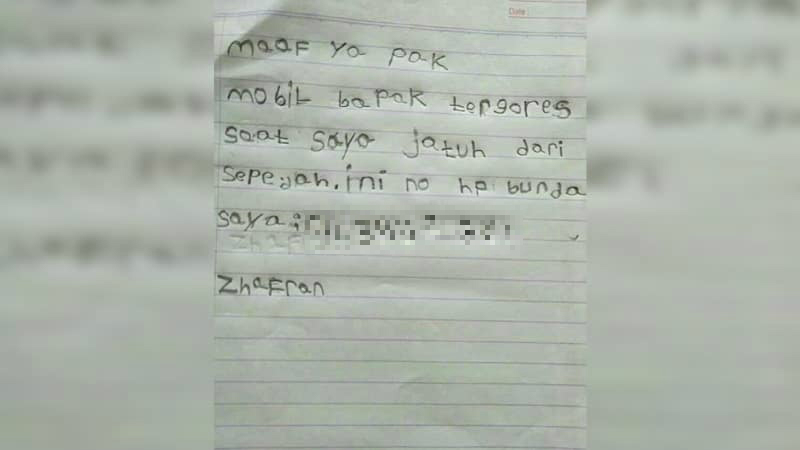 Date
maaf ya pak
mobil bapak tergores
saat saya jatuh dari
sepedah. ini no hp bunda
saya :
Zhafran